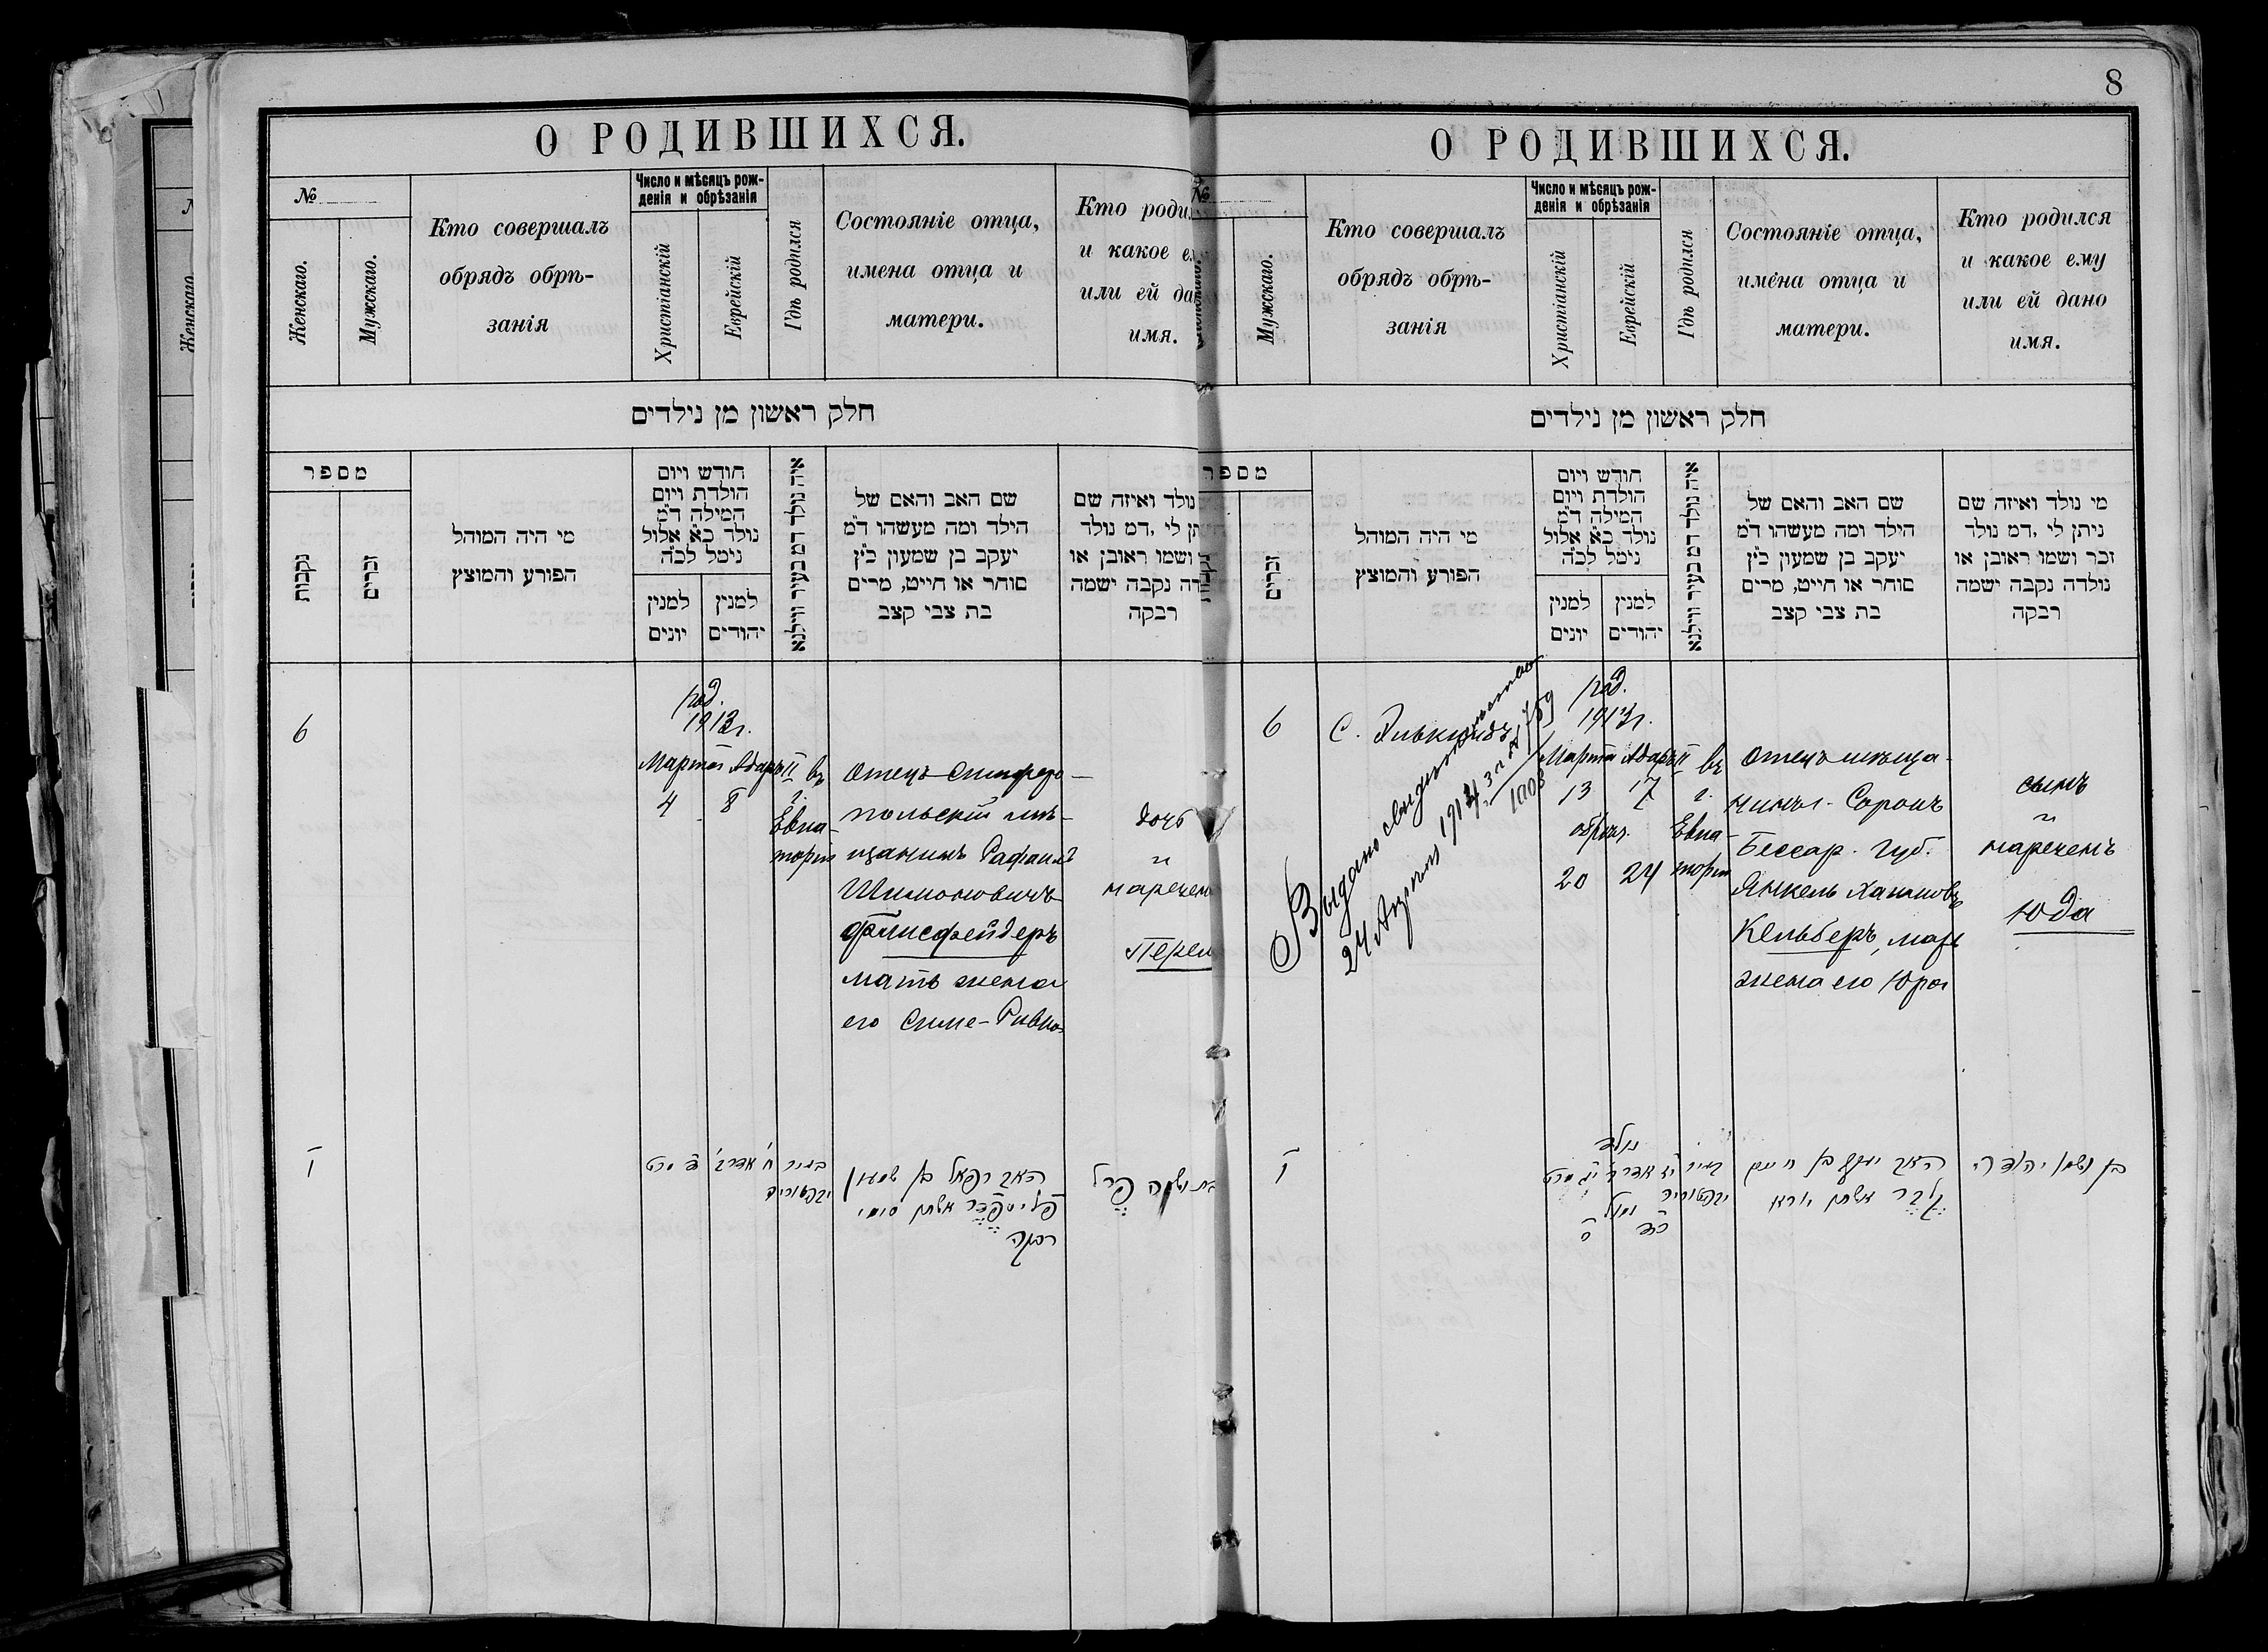 О РОДИВШИХСЯ.
№
Женскаго.
Мужскаго.
Кто совершалъ
обрядъ обрѣ-
занія
Число и мѣсяцъ рож-
денія и обрѣзанія
Христіанскій
Еврейскій
Гдѣ родился
Состояніе отца,
имена отца и
матери.
Кто роди
и какое е
или ей да
имя.
חלק ראשון מן נילדים
מספר
נקבות
זכרים
מי היה המוהל
הפורע והמוצץ
חודש ויום
הולדת ויום
המילה ד״מ
נולד כ״א אלול
נימל לכ״ה
למנין
יונים
למנין
יהודים
איה נולד דמ בעיר ווילנא
שם האב והאם של
הילד ומה מעשהו ד״מ
יעקב בן שמעון כ״ץ
סוחר או חייט, מרים
בת צבי קצב
נולד ואיזה שם
תן לי ,דמ נולד
ושמו ראובן או
דה נקבה ישמה
רבקה
6
род.
1913 г.
Марта Адаръ II въ
4 8 г.
Евпа-
торіи
Отецъ Симферо-
польскій мѣ-
щанинъ Рафаилъ
Шимоновичъ
мать жена
его Симе-Ривка
дочь
и
нарече
Перел
ו
ח׳ אדר ב׳
ד מרט
בעיר
האב רפאל בן שמעון
אשתו סימי
רבקה
פרל
8
О РОДИВШИХСЯ.
№
Мужскаго.
Кто совершалъ
обрядъ обрѣ-
занія
Число и мѣсяцъ рож-
денія и обрѣзанія
Христіанскій
Еврейскій
Гдѣ родился
Состояніе отца,
имена отца и
матери.
Кто родился
и какое ему
или ей дано
имя.
חלק ראשון מן נילדים
מספר
זכרים
מי היה המוהל
הפורע והמוצץ
חודש ויום
הולדת ויום
המילה ד״מ
נולד כ״א אלול
נימל לכ״ה
למנין
יונים
למנין
יהודים
איה נולד דמ בעיר ווילנא
שם האב והאם של
הילד ומה מעשהו ד״מ
יעקב בן שמעון כ״ץ
סוחר או חייט, מרים
בת צבי קצב
מי נולד ואיזה שם
ניתן לי ,דמ נולד
זכר ושמו ראובן או
נולדה נקבה ישמה
רבקה
6
С.
Выдано свидѣтельство
24 Апрѣля
род.
1913 г.
Марта Адаръ II въ
13 17 г.
обрѣз. Евпа-
20 24 торіи
Отецъ мѣща-
нинъ г. Сорокъ
Бессар. Губ.
Янкель Хаимовъ
Кельберъ, мать
жена его Юра
сынъ
и
нареченъ
Юда
ו
נולד
יז אדר ב׳ יג מרט
ונמול
כד
כ
האב יעקב בן חיים
קלבר אשתו יורא
בן ושמו יהודה